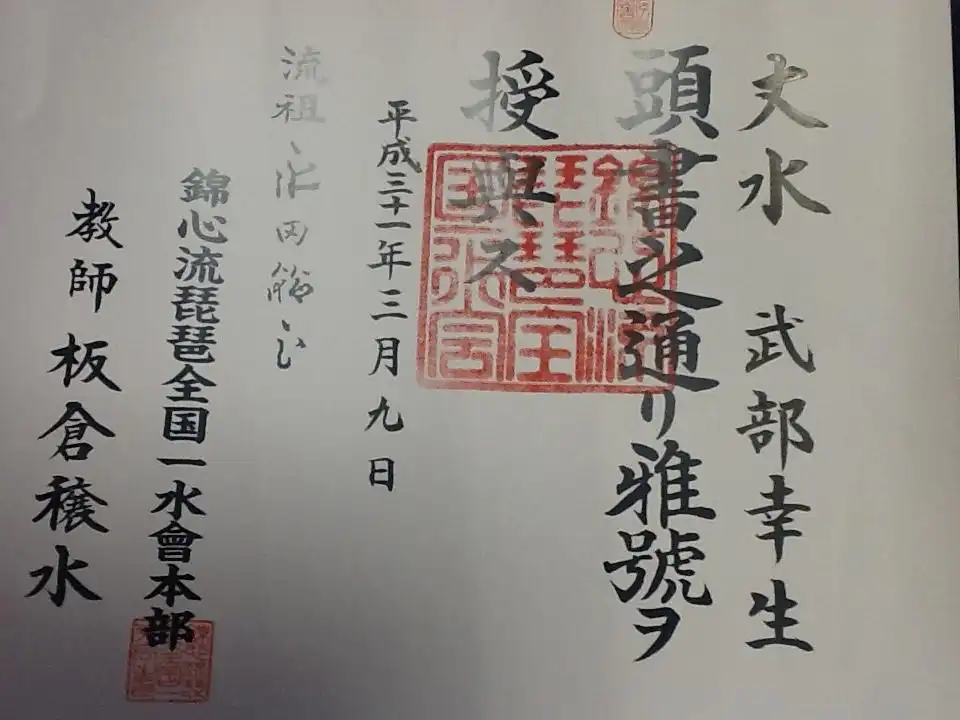 丈水 武部幸生
頭書之通リ雅號ヲ
授與ス
平成三十一年三月九日
流祖 永田錦心
錦心流琵琶全国一水會本部
教師 板倉穣水